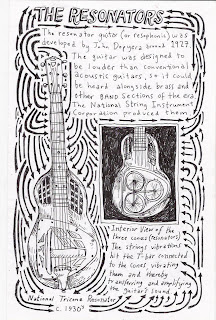 THE RESONATORS
The resonator guitar (or resophonic) was
developed by John Dopyera around 1927.
The guitar was designed to
be louder than conventional
acoustic guitars, so it could
be heard alongside brass and
other BAND sections of the era.
The National String Instrument
Corporation produced them
Interior View of the
three cones (resonators)
The strings vibrations
hit the T-bar connected
to the cones, vibrating
them and thereby
transferring and amplifying
the guitars sound.
National Tricone Resonator
c. 1930s